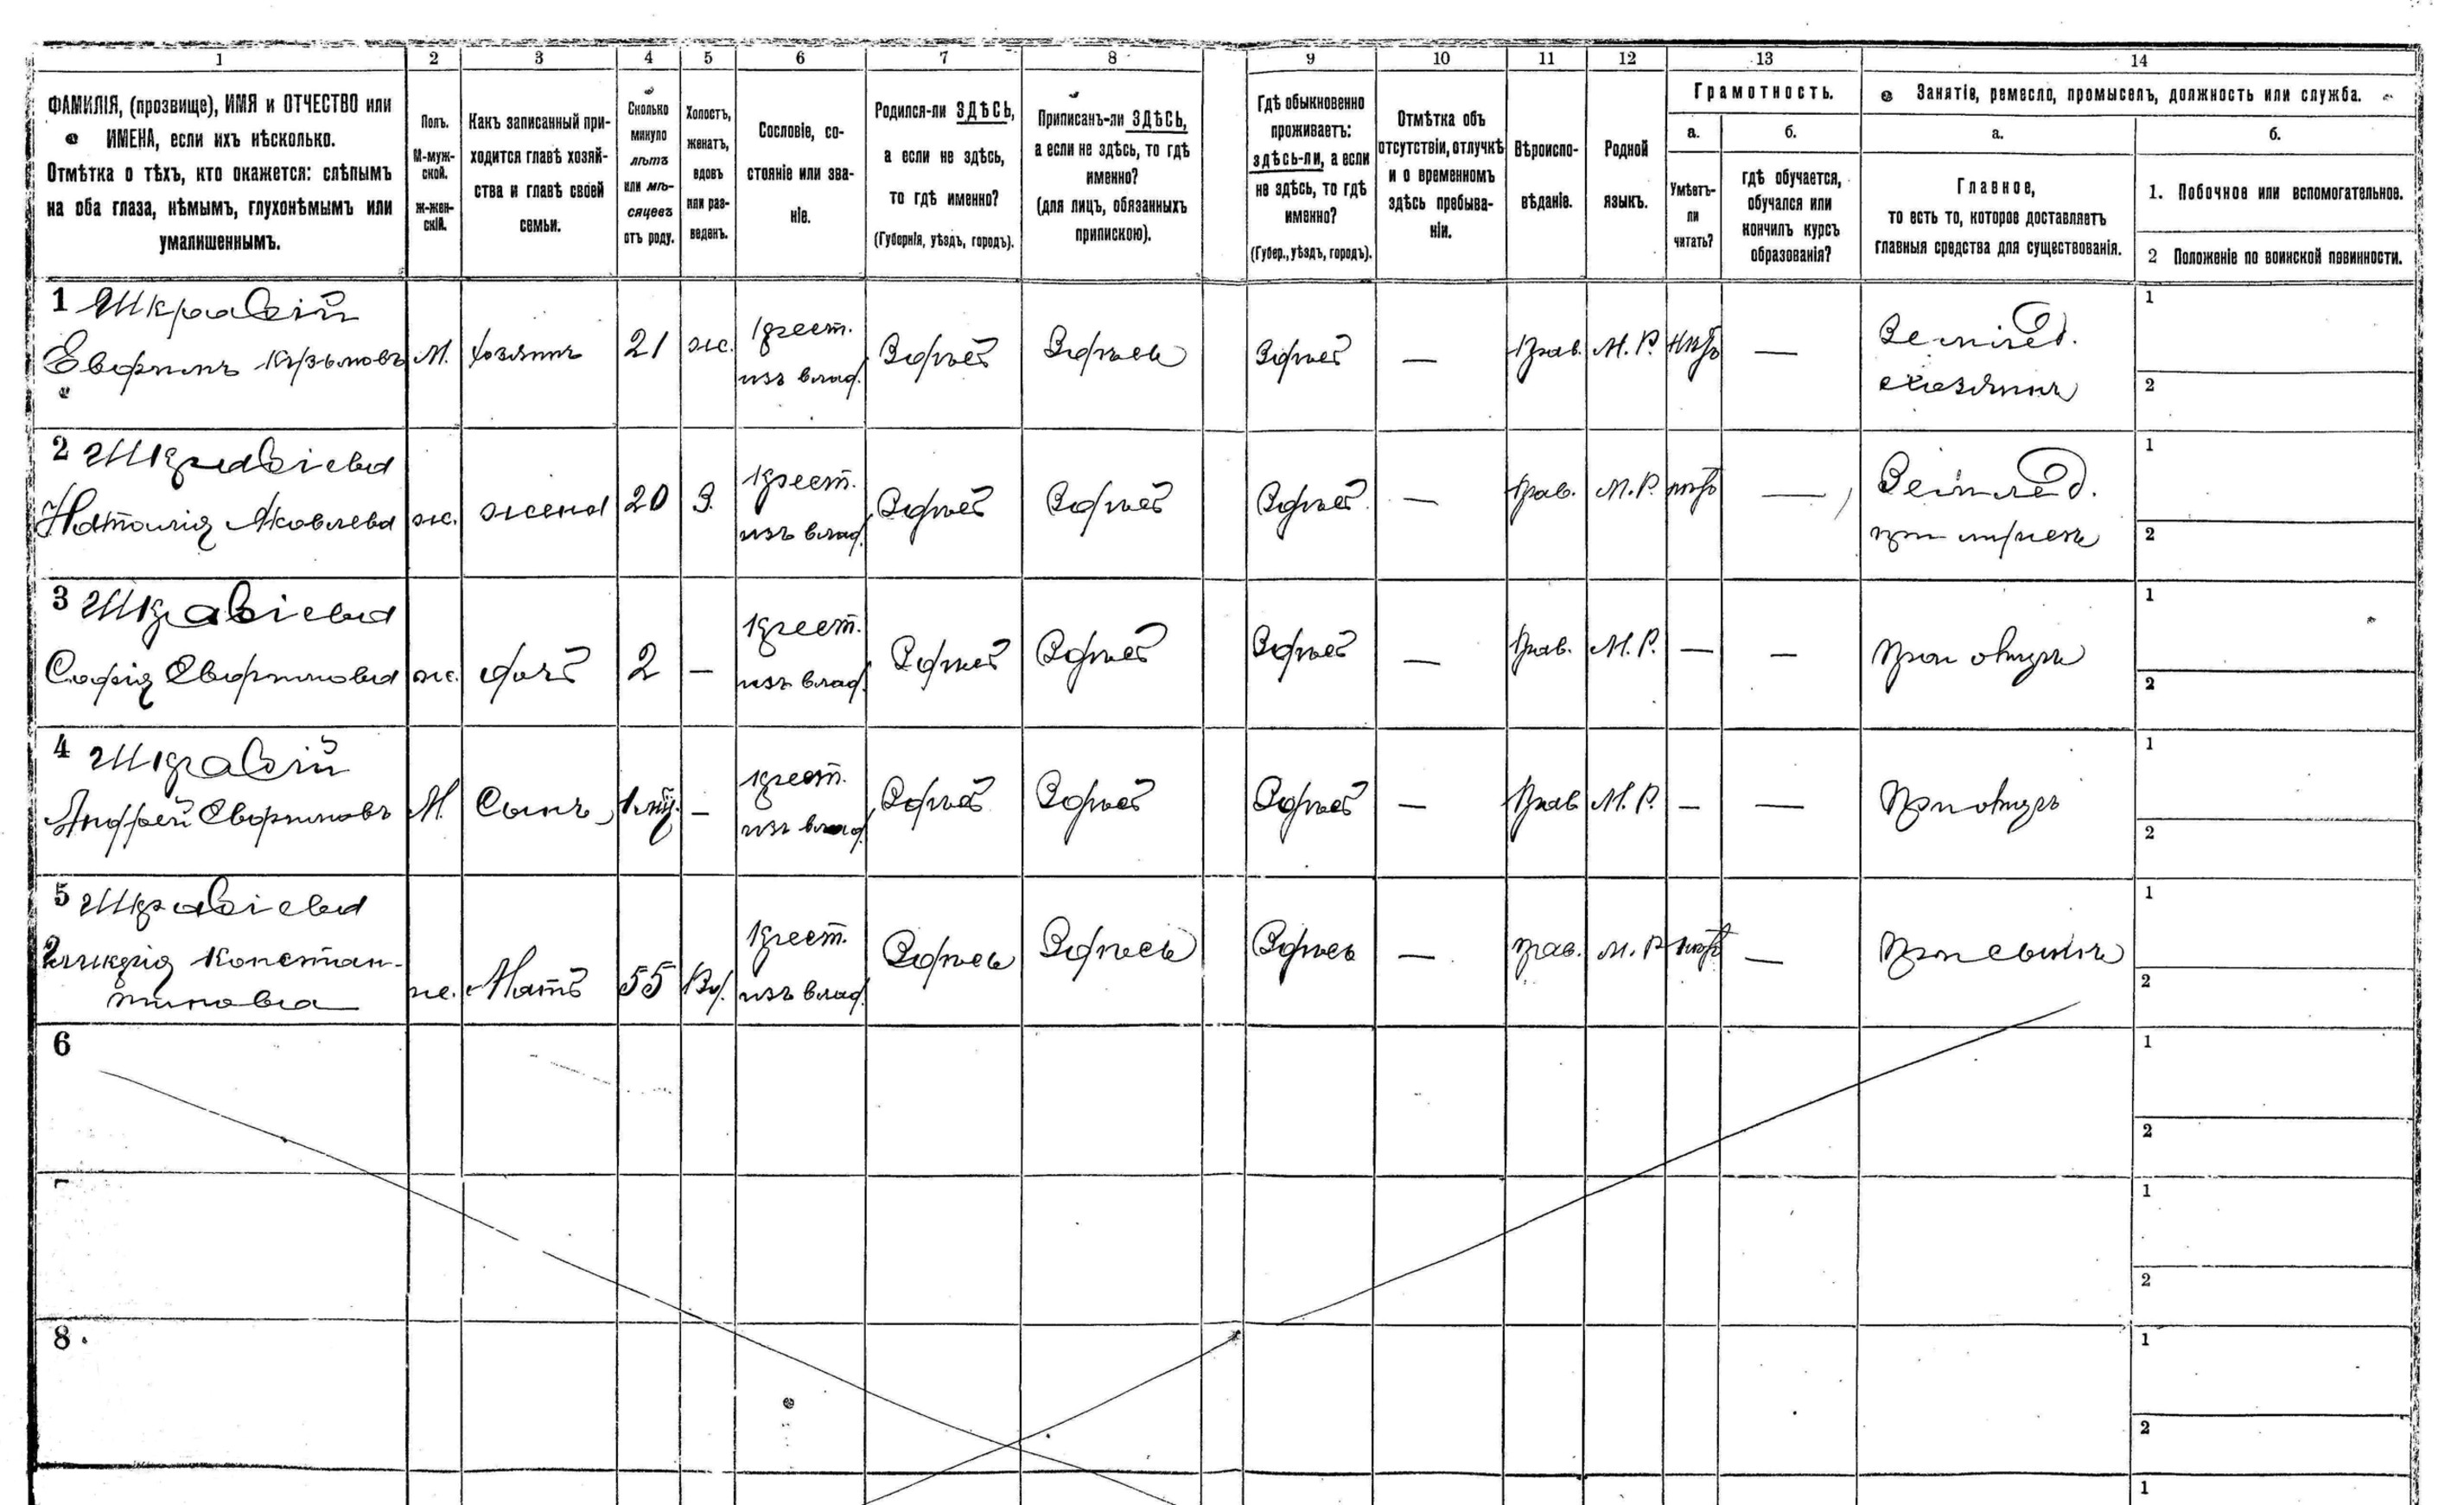 1 2 3 4 5 6 7 8 9 10 11 12 13 14
ФАМИЛІЯ, (прозвище), ИМЯ и ОТЧЕСТВО или
ИМЕНА, если ихъ нѣсколько.
Отмѣтка о тѣхъ, кто окажется: слѣпымъ
на оба глаза, нѣмымъ, глухонѣмымъ или
умалишеннымъ.
Полъ.
М-муж-
ской.
Ж-жен-
скій.
Какъ записанный при-
ходится главѣ хозяй-
ства и главѣ своей
семьи.
Сколько
минуло
лѣтъ
или мѣ-
сяцевъ
отъ роду.
Холостъ,
женатъ,
вдовъ
или раз-
веденъ.
Сословіе, со-
стояніе или зва-
ніе.
Родился-ли ЗДѢСЬ,
а если не здѣсь,
то гдѣ именно?
(Губернія, уѣздъ, городъ).
Приписанъ-ли ЗДѢСЬ,
а если не здѣсь, то гдѣ
именно?
(для лицъ, обязанныхъ
припискою).
Гдѣ обыкновенно
проживаетъ:
здѣсь-ли, а если
не здѣсь, то гдѣ
именно?
(Губер., уѣздъ, городъ).
Отмѣтка объ
отсутствіи, отлучкѣ
и о временномъ
здѣсь пребыва-
ніи.
Вѣроиспо-
вѣданіе.
Родной
языкъ.
Грамотность.
а.
Умѣетъ-
ли
читать?
б.
гдѣ обучается,
обучался или
кончилъ курсъ
образованія?
Занятіе, ремесло, промыселъ, должность или служба.
а.
Главное,
то есть то, которое доставляетъ
главныя средства для существованія.
б.
1. Побочное или вспомогательное.
2 Положеніе по воинской повинности.
1 Шкравій
М. хозяинъ 21 ж. крест. Здѣсь Здѣсь Здѣсь — Прав. М. Р. нѣтъ — Землед. 1
изъ влад. хозяинъ 2
2 Шкравіева
Наталія Яковлева ж. жена 20 З. крест. Здѣсь Здѣсь Здѣсь — Прав. М. Р. нѣтъ — Землед. 1
изъ влад. при мужѣ 2
3 Шкравіева
Софія ж. дочь 2 — крест. Здѣсь Здѣсь Здѣсь — Прав. М. Р. — — при отцѣ 1
изъ влад. 2
4 Шкравій
Андрей М. Сынъ 1 — крест. Здѣсь Здѣсь Здѣсь — Прав М. Р. — — При отцѣ 1
изъ влад. 2
5 Шкравіева
Констан-
тинова ж. Мать 55 Вд. крест. Здѣсь Здѣсь Здѣсь — прав. М. Р нѣтъ — При сынѣ 1
изъ влад. 2
6 1
2
7 1
2
8 1
2
1